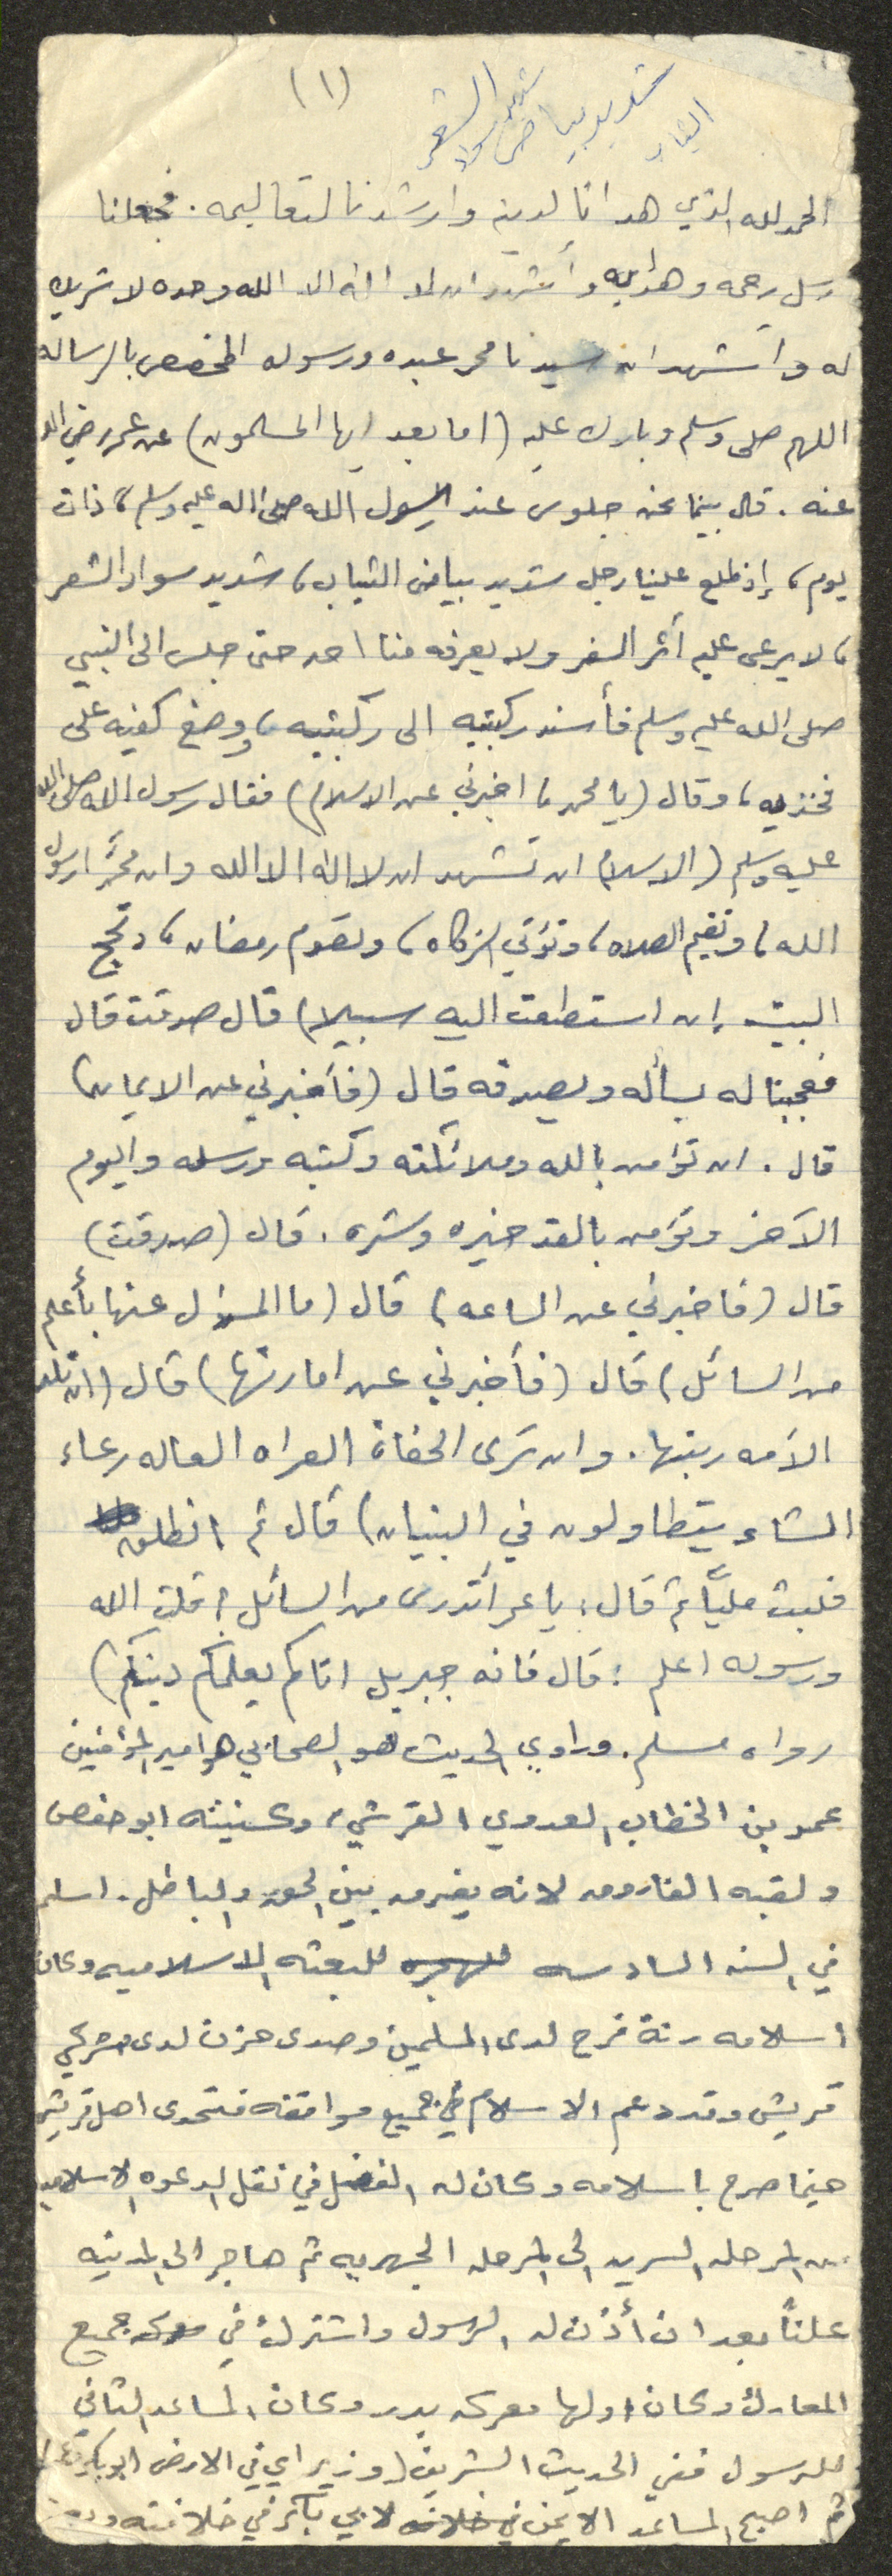 (١)
شديد بياض الثياب شديد سواد الشعر
الحمد لله الذي هدانا لدينه وارشدنا لتعاليمه. فجعلنا
رسل رحمه وهدايه وأشهد ان لا اله الا الله وحده لا شريك
له وأشهد ان سيدنا محمد عبده ورسوله المخصص بالرساله
اللهم صلى وسلم وبارك عليه (اما بعد ايها المسلمون) عن عمر رضي الله
عنه. قال بينما نحن جلوس عند الرسول الله صلى الله عليه وسلم، ذات
يوم، إذ طلع علينا رجل شديد بياض الثياب، شديد سواد الشعر
، لا يرى عليه أثر السفر ولا يعرفه منا احد حتى جلس الى النبي
صلى الله عليه وسلم فأسند ركبتيه الى ركبتيه، ووضع كفيه على
فخذيه، وقال (يا محمد، اخبرني عن الاسلام) فقال رسول الله صلى الله
عليه وسلم (الاسلام ان تشهد ان لا اله الا الله وان محمداً رسول
الله، وتقيم الصلاه، وتؤتي الزكاه، وتصوم رمضان، وتحج
البيت إن استطعت اليه سبيلا) قال صدقت قال
فعجبنا له يسأله ويصدقه قال (فأخبرني عن الايمان)
قال. ان تؤمن بالله وملائكته وكتبه ورسله واليوم
الآخر وتؤمن بالقدر خيره وشره. قال (صدقت)
قال (فاخبرني عن الساعه) قال (ما المسؤل عنها بأعلم
من السائل) قال (فأخبرني عن اماراتها) قال (ان تلد
الأمه ربتها. وان ترى الحفاة العراه العاله رعاء
الشاء يتطاولون في البنيان) قال ثم انطلق
فلبث مليَّاً ثم قال: يا عمر أتدرى من السائل؟ قلت الله
ورسوله اعلم: قال فانه جبريل اتاكم يعلمكم دينكم)
رواه مسلم. وراوي الحديث هو الصحابي هو امير المؤمنين
عمر بن الخطاب العدوي القرشي، وكنيته ابو حفص
ولقبه الفاروق لانه يفرق بين الحق والباطل. اسلم
في السنه السادسه للهجره للبعثه الاسلاميه وكان
اسلامه رنة فرح لدى المسلمين وصدى حزن لدى مشركي
قريش وقد دعم الاسلام في جميع مواقفه فتحدى اهل قريش
حينما صرح باسلامه وكان له الفضل في نقل الدعوه الاسلاميه
من المرحله السريه الى المرحله الجهريه ثم هاجر الى المدينه
علناً بعد ان أذن له الرسول واشترك في معركه جميع
المعارك وكان اولها معركه بدر وكان المساعد الثاني
للرسول ففي الحديث الشريف (وزيراي في الارض ابو بكر وعمر)
ثم اصبح المساعد الايمن في خلافته لابي بكر في خلافته